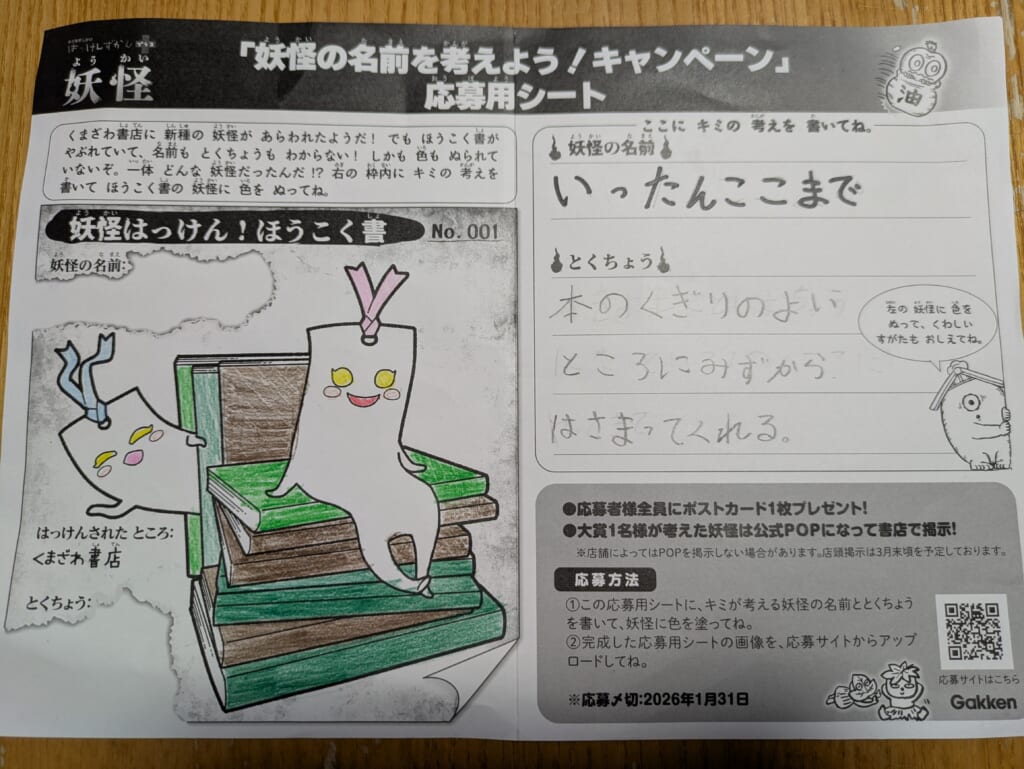 はっけんずかん プラス
妖怪
ようかい
「妖怪の名前を考えよう！キャンペーン」
応募用シート
油
くまざわ書店に 新種の 妖怪が あらわれたようだ！ でも ほうこく書が
やぶれていて、名前も とくちょうも わからない！ しかも 色も ぬられて
いないぞ。一体 どんな 妖怪だったんだ !? 右の 枠内に キミの 考えを
書いて ほうこく書の 妖怪に 色を ぬってね。
妖怪はっけん！ほうこく書 No. 001
妖怪の名前:
はっけんされた ところ:
くまざわ書店
とくちょう:
ここに キミの 考えを 書いてね。
妖怪の名前
いったんここまで
とくちょう
本のくぎりのよい
ところにみずから
はさまってくれる。
左の 妖怪に 色を
ぬって、くわしい
すがたも おしえてね。
●応募者様全員にポストカード1枚プレゼント!
●大賞1名様が考えた妖怪は公式POPになって書店で掲示!
※店舗によってはPOPを掲示しない場合があります。店頭掲示は3月末頃を予定しております。
応募方法
①この応募用シートに、キミが考える妖怪の名前ととくちょう
を書いて、妖怪に色を塗ってね。
②完成した応募用シートの画像を、応募サイトからアップ
ロードしてね。
※応募〆切:2026年1月31日
応募サイトはこちら
Gakken